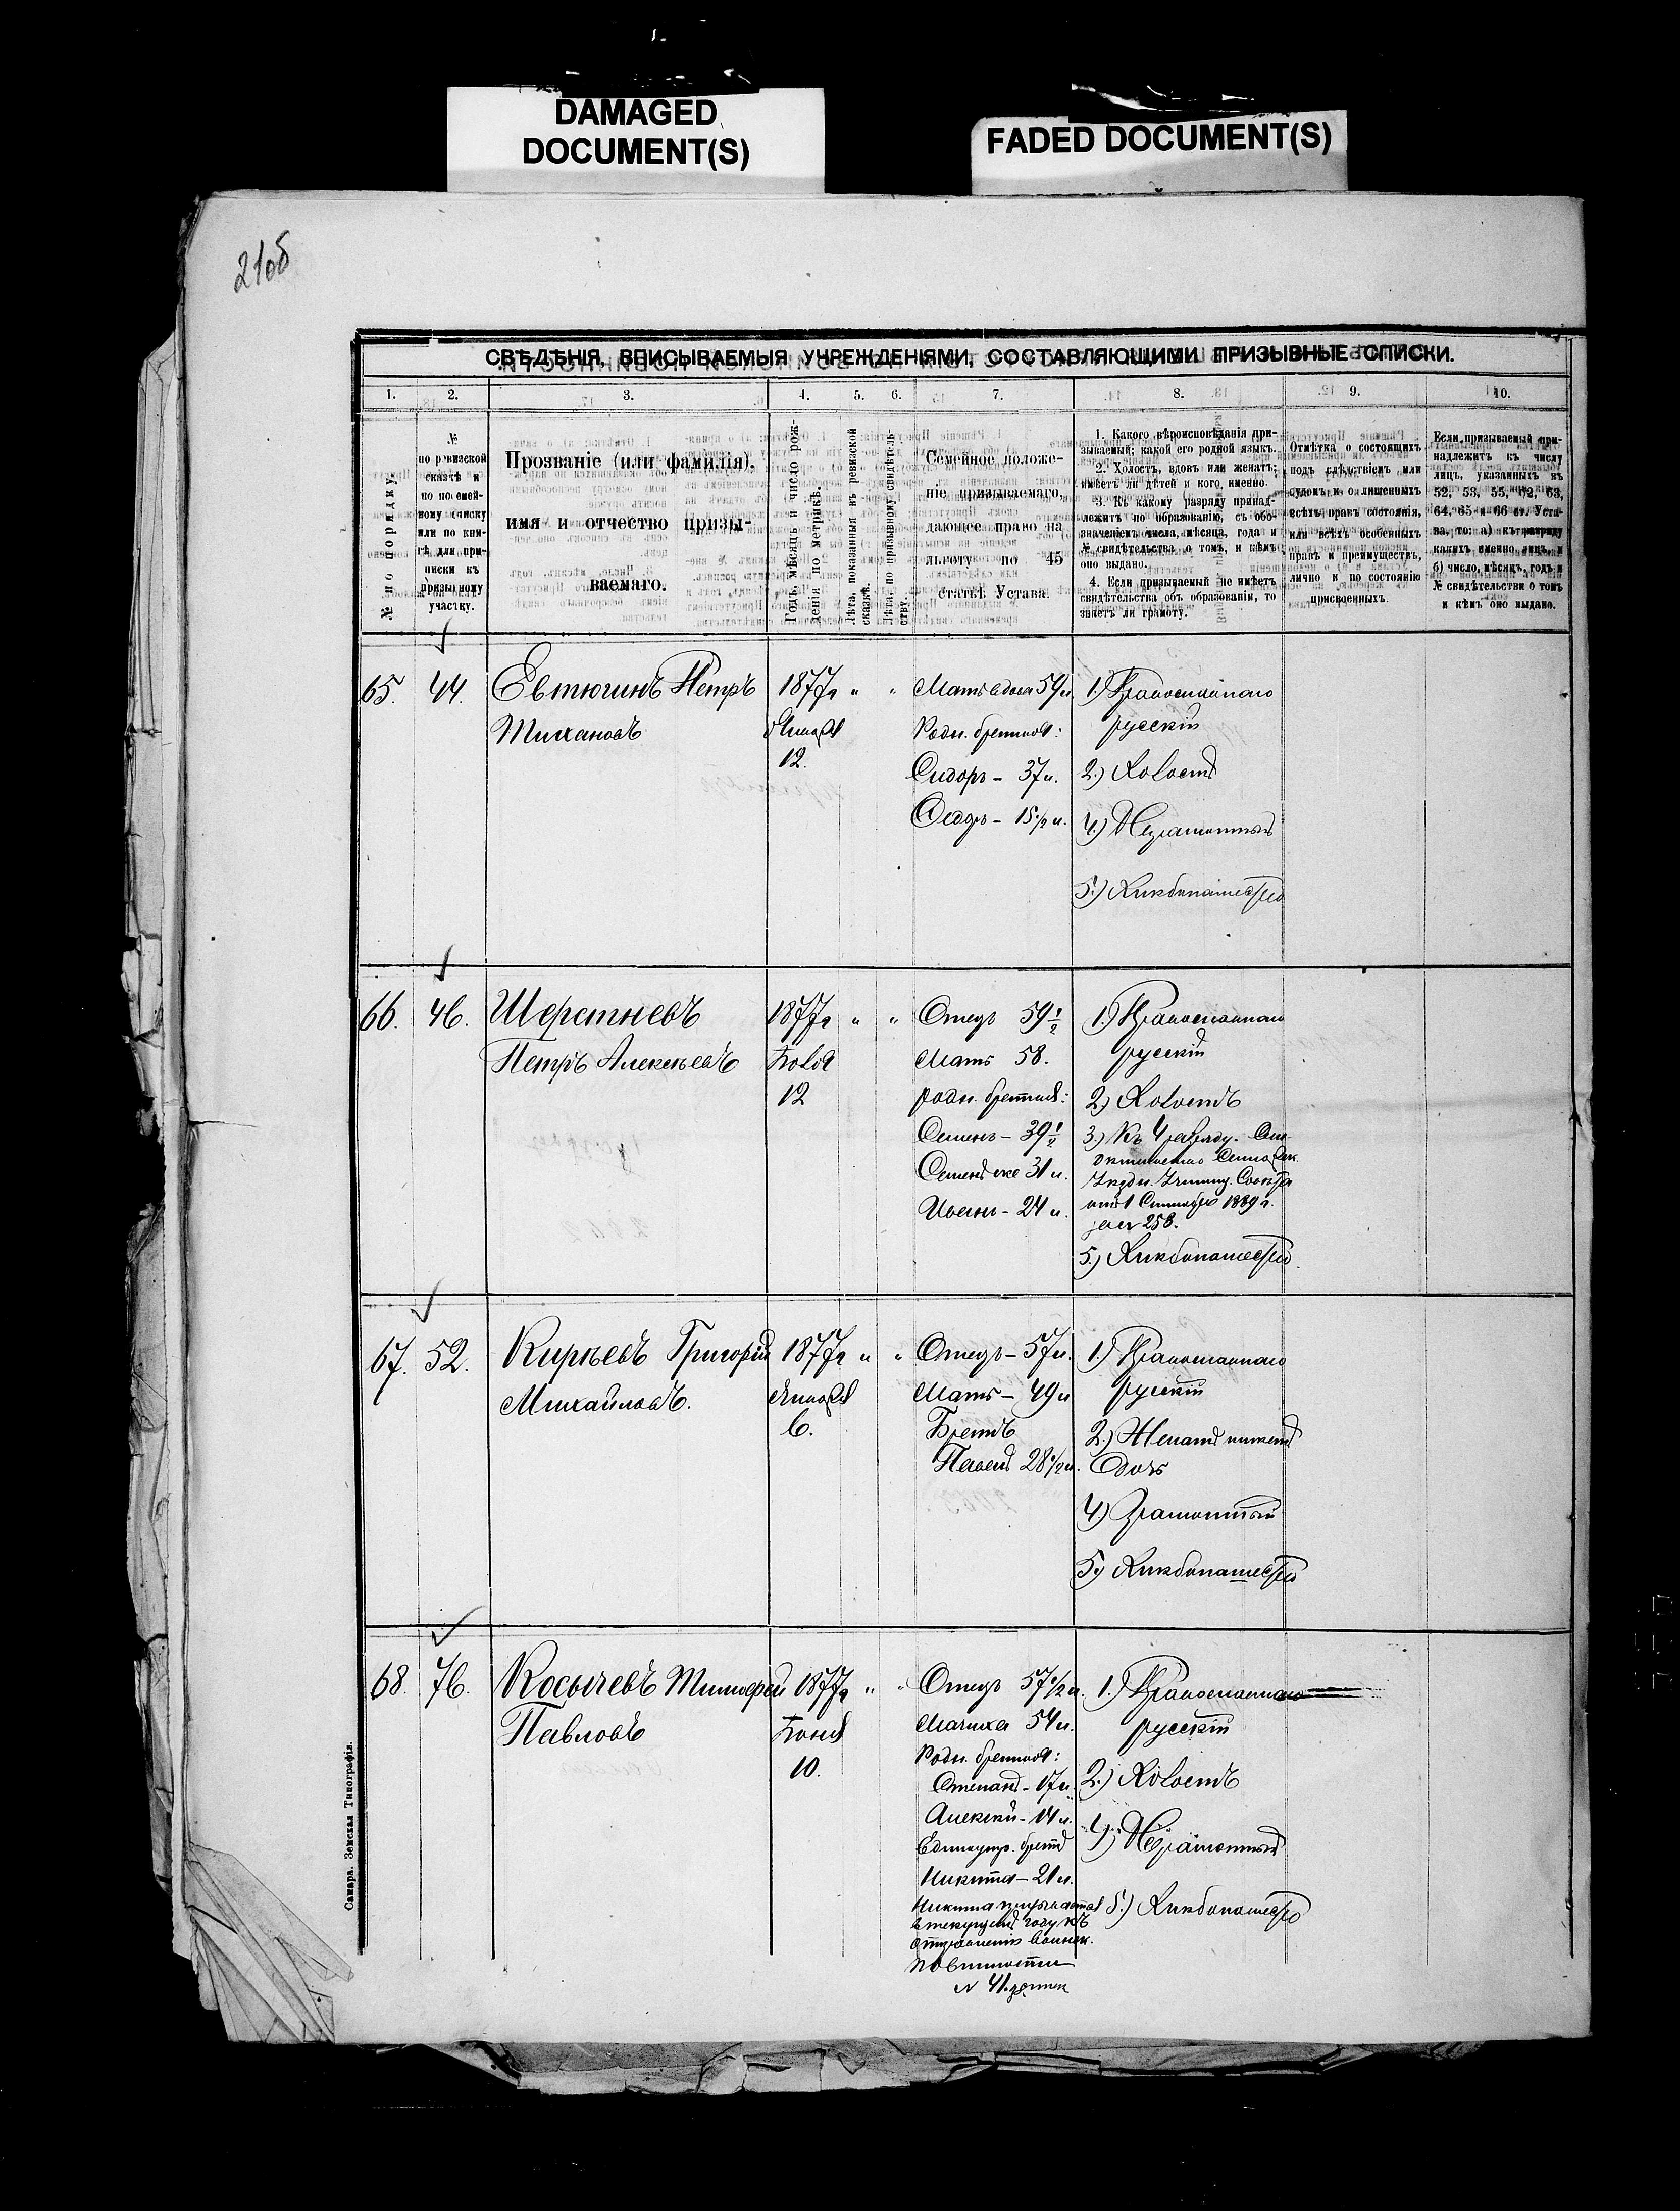 DAMAGED
DOCUMENT(S)
FADED DOCUMENT(S)
210б
СВѢДѢНІЯ, ВПИСЫВАЕМЫЯ УЧРЕЖДЕНІЯМИ, СОСТАВЛЯЮЩИМИ ПРИЗЫВНЫЕ СПИСКИ.
1. 2. 3. 4. 5. 6. 7. 8. 9. 10.
№ по порядку.
№
по ревизской
сказкѣ и
по посемей-
ному списку
или по кни-
гѣ для при-
писки къ
призывному
участку.
Прозваніе (или фамилія),
имя и отчество призы-
ваемаго.
Годъ, мѣсяцъ и число рож-
денія по метрикѣ.
Лѣта, показанныя въ ревизской
сказкѣ.
Лѣта, по призывному свидѣтель-
ству.
Семейное положе-
ніе призываемаго,
дающее право на
льготу по 45
статьѣ Устава.
1. Какого вѣроисповѣданія при-
зываемый; какой его родной языкъ.
2. Холостъ, вдовъ или женатъ;
имѣетъ ли дѣтей и кого, именно.
3. Къ какому разряду принад-
лежитъ по образованію, съ обо-
значеніемъ числа, мѣсяца, года и
№ свидѣтельства о томъ, и кѣмъ
оно выдано.
4. Если призываемый не имѣетъ
свидѣтельства объ образованіи, то
знаетъ ли грамоту.
Отмѣтка о состоящихъ
подъ слѣдствіемъ или
судомъ и о лишенныхъ
всѣхъ правъ состоянія,
или всѣхъ особенныхъ
правъ и преимуществъ,
лично и по состоянію
присвоенныхъ.
Если призываемый при-
надлежитъ къ числу
лицъ, указанныхъ въ
52, 53, 55, 62, 63,
64, 65 и 66 ст. Уста-
ва, то: а) къ разряду
какихъ именно лицъ и
б) число, мѣсяцъ, годъ и
№ свидѣтельства о томъ
и кѣмъ оно выдано.
65. 44. Евтюгинъ Петръ
Тихановъ
1877г " "
12.
Мать вдова 54 л.
Родн. братья:
Сидоръ - 37 л.
Федоръ - 15 1/2 л.
1.) Православнаго
русскій
2.) Холостъ
4.) Неграмотный
5.) Хлѣбопашество
66. 46. Шерстневъ
Петръ Алексѣевъ
1877г " "
12
Отецъ 59 1/2
Мать 58.
родн. братья:
Семенъ - 39 1/2
Семенъ же 31 л.
Иванъ - 24 л.
1.) Православнаго
русскій
2.) Холостъ
3.) Къ 4 разряду.
1889 г.
за № 258.
5.) Хлѣбопашество
67. 52. Кирѣевъ Григорій
Михайловъ.
1877г " "
6.
Отецъ - 57 л.
Мать - 49 л
Братъ
Павелъ 28 1/2 л.
1.) Православнаго
русскій
2.) Женатъ имѣетъ
дочь
4.) Грамотный
5.) Хлѣбопашество
68. 76. Косычевъ Тимофей
Павловъ
1877г " "
10.
Отецъ 57 1/2 л.
Мачиха 54 л.
Родн. братья:
Степанъ - 17 л.
Алексѣй - 14 л.
Единоутр. братъ
Никита - 21 л.
Никита призывается
въ текущемъ году къ
отправленію воинск.
повинности
№ 41.
1.) Православнаго
русскій
2.) Холостъ
4.) Неграмотный
5.) Хлѣбопашество
Самара. Земская Типографія.